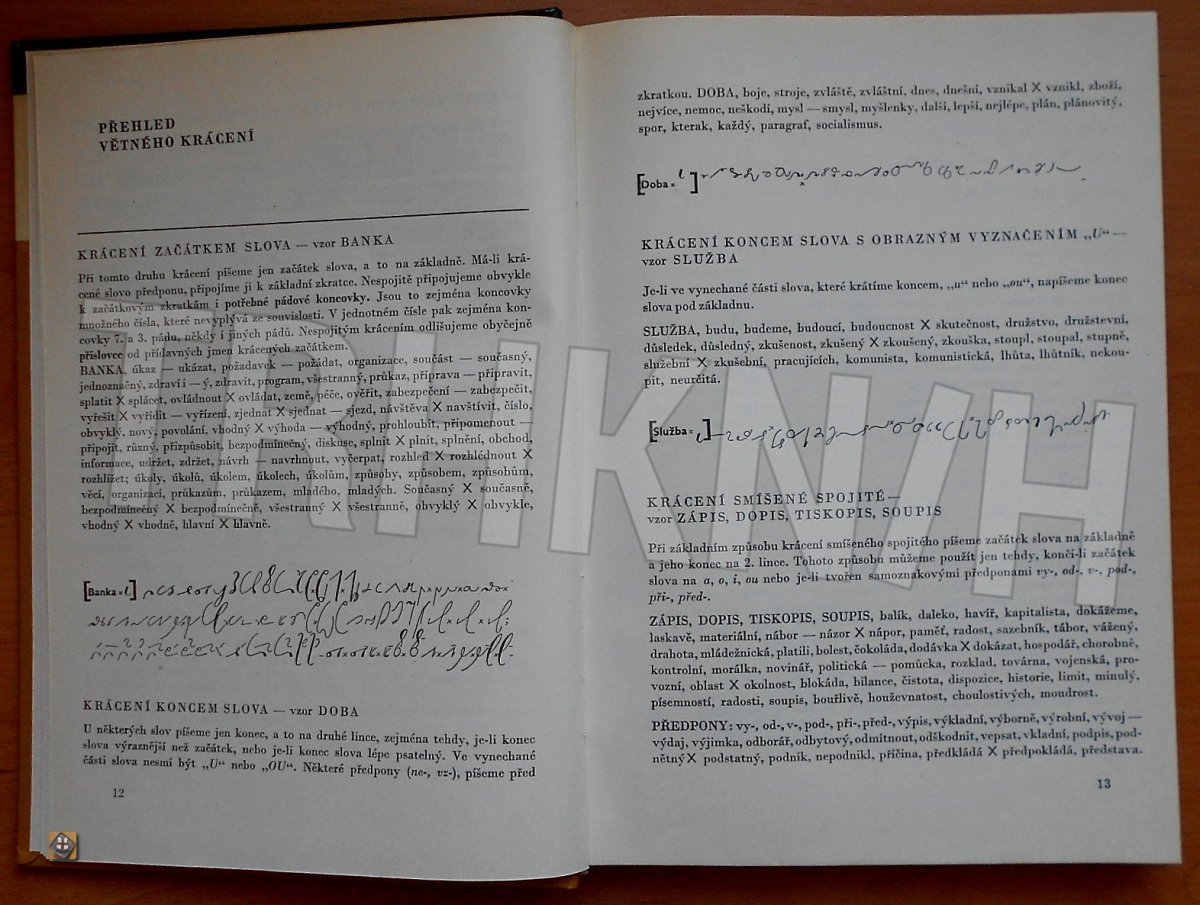 PŘEHLED
VĚTNÉHO KRÁCENÍ
KRÁCENÍ ZAČÁTKEM SLOVA — vzor BANKA
Při tomto druhu krácení píšeme jen začátek slova, a to na základně. Má-li krá-
cené slovo předponu, připojíme ji k základní zkratce. Nespojitě připojujeme obvykle
k začátkovým zkratkám i potřebné pádové koncovky. Jsou to zejména koncovky
množného čísla, které nevyplývá ze souvislosti. V jednotném čísle pak zejména kon-
covky 7. a 3. pádu, někdy i jiných pádů. Nespojitým krácením odlišujeme obyčejně
příslovce od přídavných jmen krácených začátkem.
BANKA, úkaz — ukázat, požadavek — požádat, organizace, součást — současný,
jednoznačný, zdraví i — ý, zdravit, program, všestranný, průkaz, příprava — připravit,
splatit X splácet, ovládnout X ovládat, země, péče, ověřit, zabezpečení — zabezpečit,
vyřešit X vyřídit — vyřízení, zjednat X sjednat — sjezd, návštěva X navštívit, číslo,
obvyklý, nový, povolání, vhodný X výhoda — výhodný, prohloubit, připomenout —
připojit, různý, přizpůsobit, bezpodmínečný, diskuse, splnit X plnit, splnění, obchod,
informace, udržet, zdržet, návrh — navrhnout, vyčerpat, rozhled X rozhlédnout X
rozhlížet; úkoly, úkolů, úkolem, úkolech, úkolům, způsoby, způsobem, způsobům,
věcí, organizací, průkazům, průkazem, mladého, mladých. Současný X současně,
bezpodmínečný X bezpodmínečně, všestranný X všestranně, obvyklý X obvykle,
vhodný X vhodně, hlavní X hlavně.
[Banka=]
KRÁCENÍ KONCEM SLOVA — vzor DOBA
U některých slov píšeme jen konec, a to na druhé lince, zejména tehdy, je-li konec
slova výraznější než začátek, nebo je-li konec slova lépe psatelný. Ve vynechané
části slova nesmí být „U“ nebo „OU“. Některé předpony (ne-, vz-), píšeme před
12
zkratkou. DOBA, boje, stroje, zvláště, zvláštní, dnes, dnešní, vznikal X vznikl, zboží,
nejvíce, nemoc, neškodí, mysl — smysl, myšlenky, další, lepší, nejlépe, plán, plánovitý,
spor, kterak, každý, paragraf, socialismus.
[Doba=]
KRÁCENÍ KONCEM SLOVA S OBRAZNÝM VYZNAČENÍM „U“ —
vzor SLUŽBA
Je-li ve vynechané části slova, které krátíme koncem, „u“ nebo „ou“, napíšeme konec
slova pod základnu.
SLUŽBA, budu, budeme, budoucí, budoucnost X skutečnost, družstvo, družstevní,
důsledek, důsledný, zkušenost, zkušený X zkoušený, zkouška, stoupl, stoupal, stupně,
služební X zkušební, pracujících, komunista, komunistická, lhůta, lhůtník, nekou-
pit, neurčitá.
[Služba=]
KRÁCENÍ SMÍŠENÉ SPOJITÉ —
vzor ZÁPIS, DOPIS, TISKOPIS, SOUPIS
Při základním způsobu krácení smíšeného spojitého píšeme začátek slova na základně
a jeho konec na 2. lince. Tohoto způsobu můžeme použít jen tehdy, končí-li začátek
slova na a, o, i, ou nebo je-li tvořen samoznakovými předponami vy-, od-, v-, pod-,
při-, před-.
ZÁPIS, DOPIS, TISKOPIS, SOUPIS, balík, daleko, havíř, kapitalista, dokážeme,
laskavě, materiální, nábor — názor X nápor, paměť, radost, sazebník, tábor, vážený,
drahota, mládežnická, platili, bolest, čokoláda, dodávka X dokázat, hospodář, chorobně,
kontrolní, morálka, novinář, politická — pomůcka, rozklad, továrna, vojenská, pro-
vozní, oblast X okolnost, blokáda, bilance, čistota, dispozice, historie, limit, minulý,
písemností, radosti, soupis, bouřlivě, houževnatost, choulostivých, moudrost.
PŘEDPONY: vy-, od-, v-, pod-, při-, před-, výpis, výkladní, výborně, výrobní, vývoj —
výdaj, výjimka, odborář, odbytový, odmítnout, odškodnit, vepsat, vkladní, podpis, pod-
nětný X podstatný, podnik, nepodnikl, příčina, předkládá X předpokládá, představa.
13